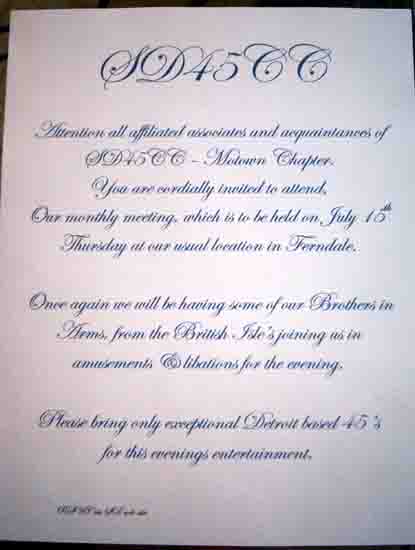 SD45CC
Attention all affiliated associates and acquaintances of
SD45CC ~ Motown Chapter.
You are cordially invited to attend,
Our monthly meeting, which is to be held on July 15th
Thursday at our usual location in Ferndale.
Once again we will be having some of our Brothers in
Arms, from the British Isle's joining us in
amusements & libations for the evening.
Please bring only exceptional Detroit based 45's
for this evenings entertainment.